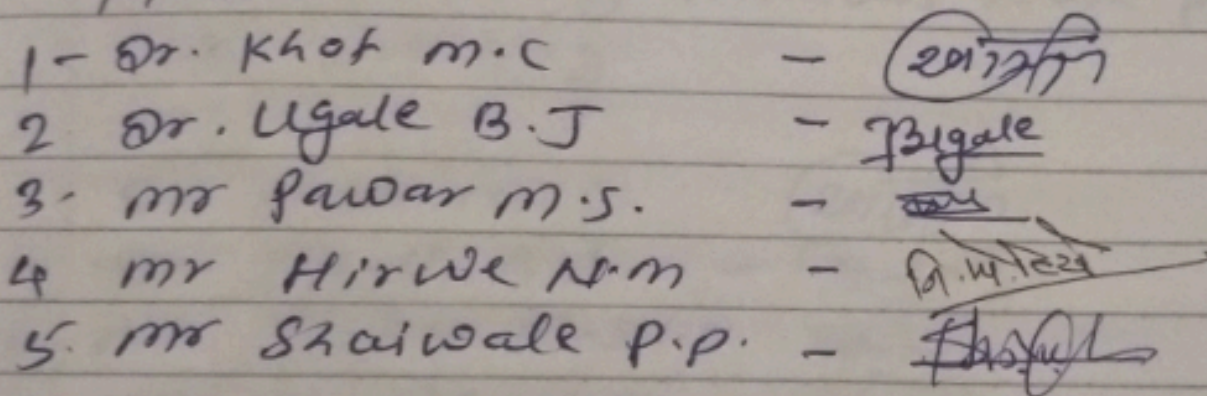 1- Dr. Khot m.c -
2 Dr. Ugale B.J - Bugale
3. mr Pawar m.s. -
4 mr Hirwe N.m -
5. mr Shaiwale P.P. -